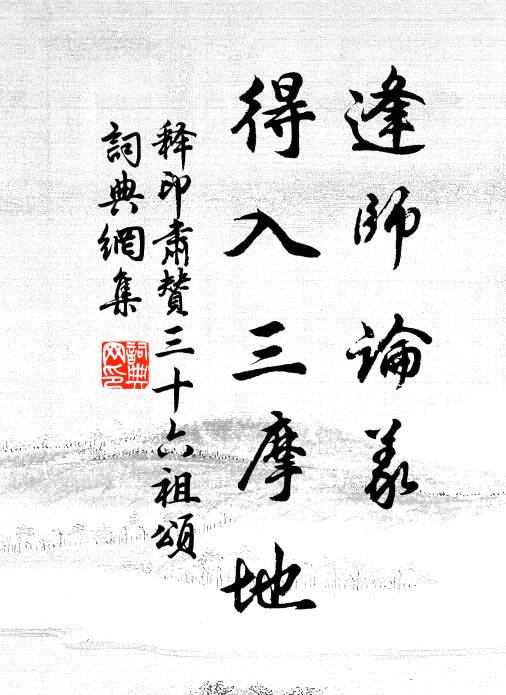 逢師論義
得入三摩地
释印肅贊三十六祖頌
詞典網集
詞典網印